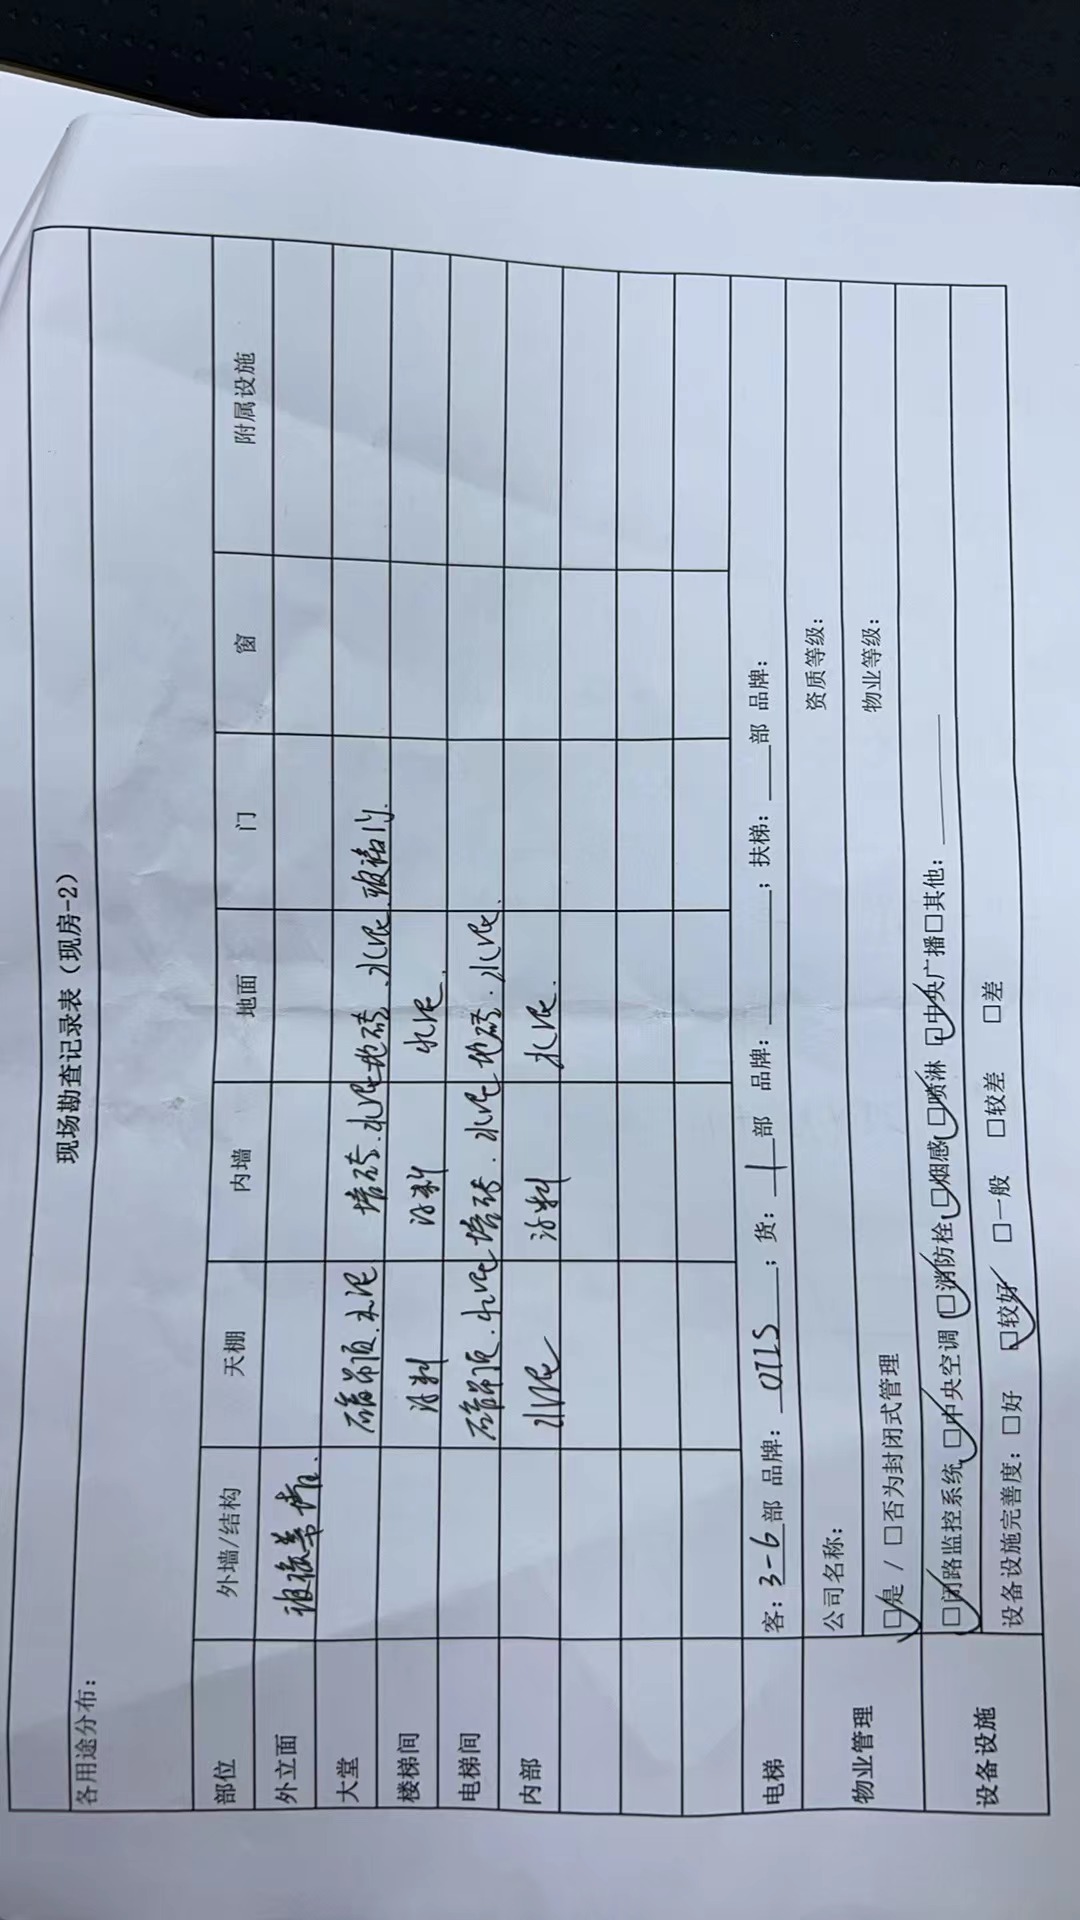 现场勘查记录表（现房-2）
各用途分布：
部位 外墙/结构 天棚 内墙 地面 门 窗 附属设施
外立面 玻璃幕墙.
大堂 石膏吊顶.水泥 墙砖.水泥 地砖.水泥. 玻璃门.
楼梯间 涂料 涂料 水泥.
电梯间 石膏吊顶.水泥 墙砖.水泥 地砖.水泥.
内部 水泥 涂料 水泥.
电梯 客：3-6部 品牌：OTIS；货：1部 品牌：；扶梯：部 品牌：
物业管理 公司名称： 资质等级：
☑是 / □否为封闭式管理 物业等级：
设备设施 ☑闭路监控系统 ☑中央空调 ☑消防栓 ☑烟感 ☑喷淋 ☑中央广播 □其他：
设备设施完善度：□好 ☑较好 □一般 □较差 □差